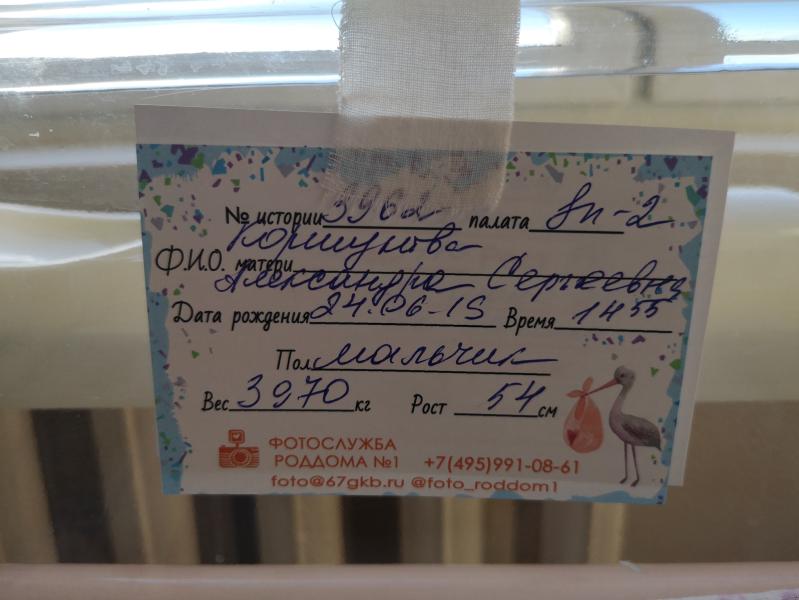 № истории 3962 палата 8п-2
Коршунова
Ф.И.О. матери
Александра Сергеевна
Дата рождения 24.06-19 Время 14 55
Пол мальчик
Вес 3970 кг Рост 54 см
ФОТОСЛУЖБА
РОДДОМА №1 +7(495)991-08-61
foto@67gkb.ru @foto_roddom1